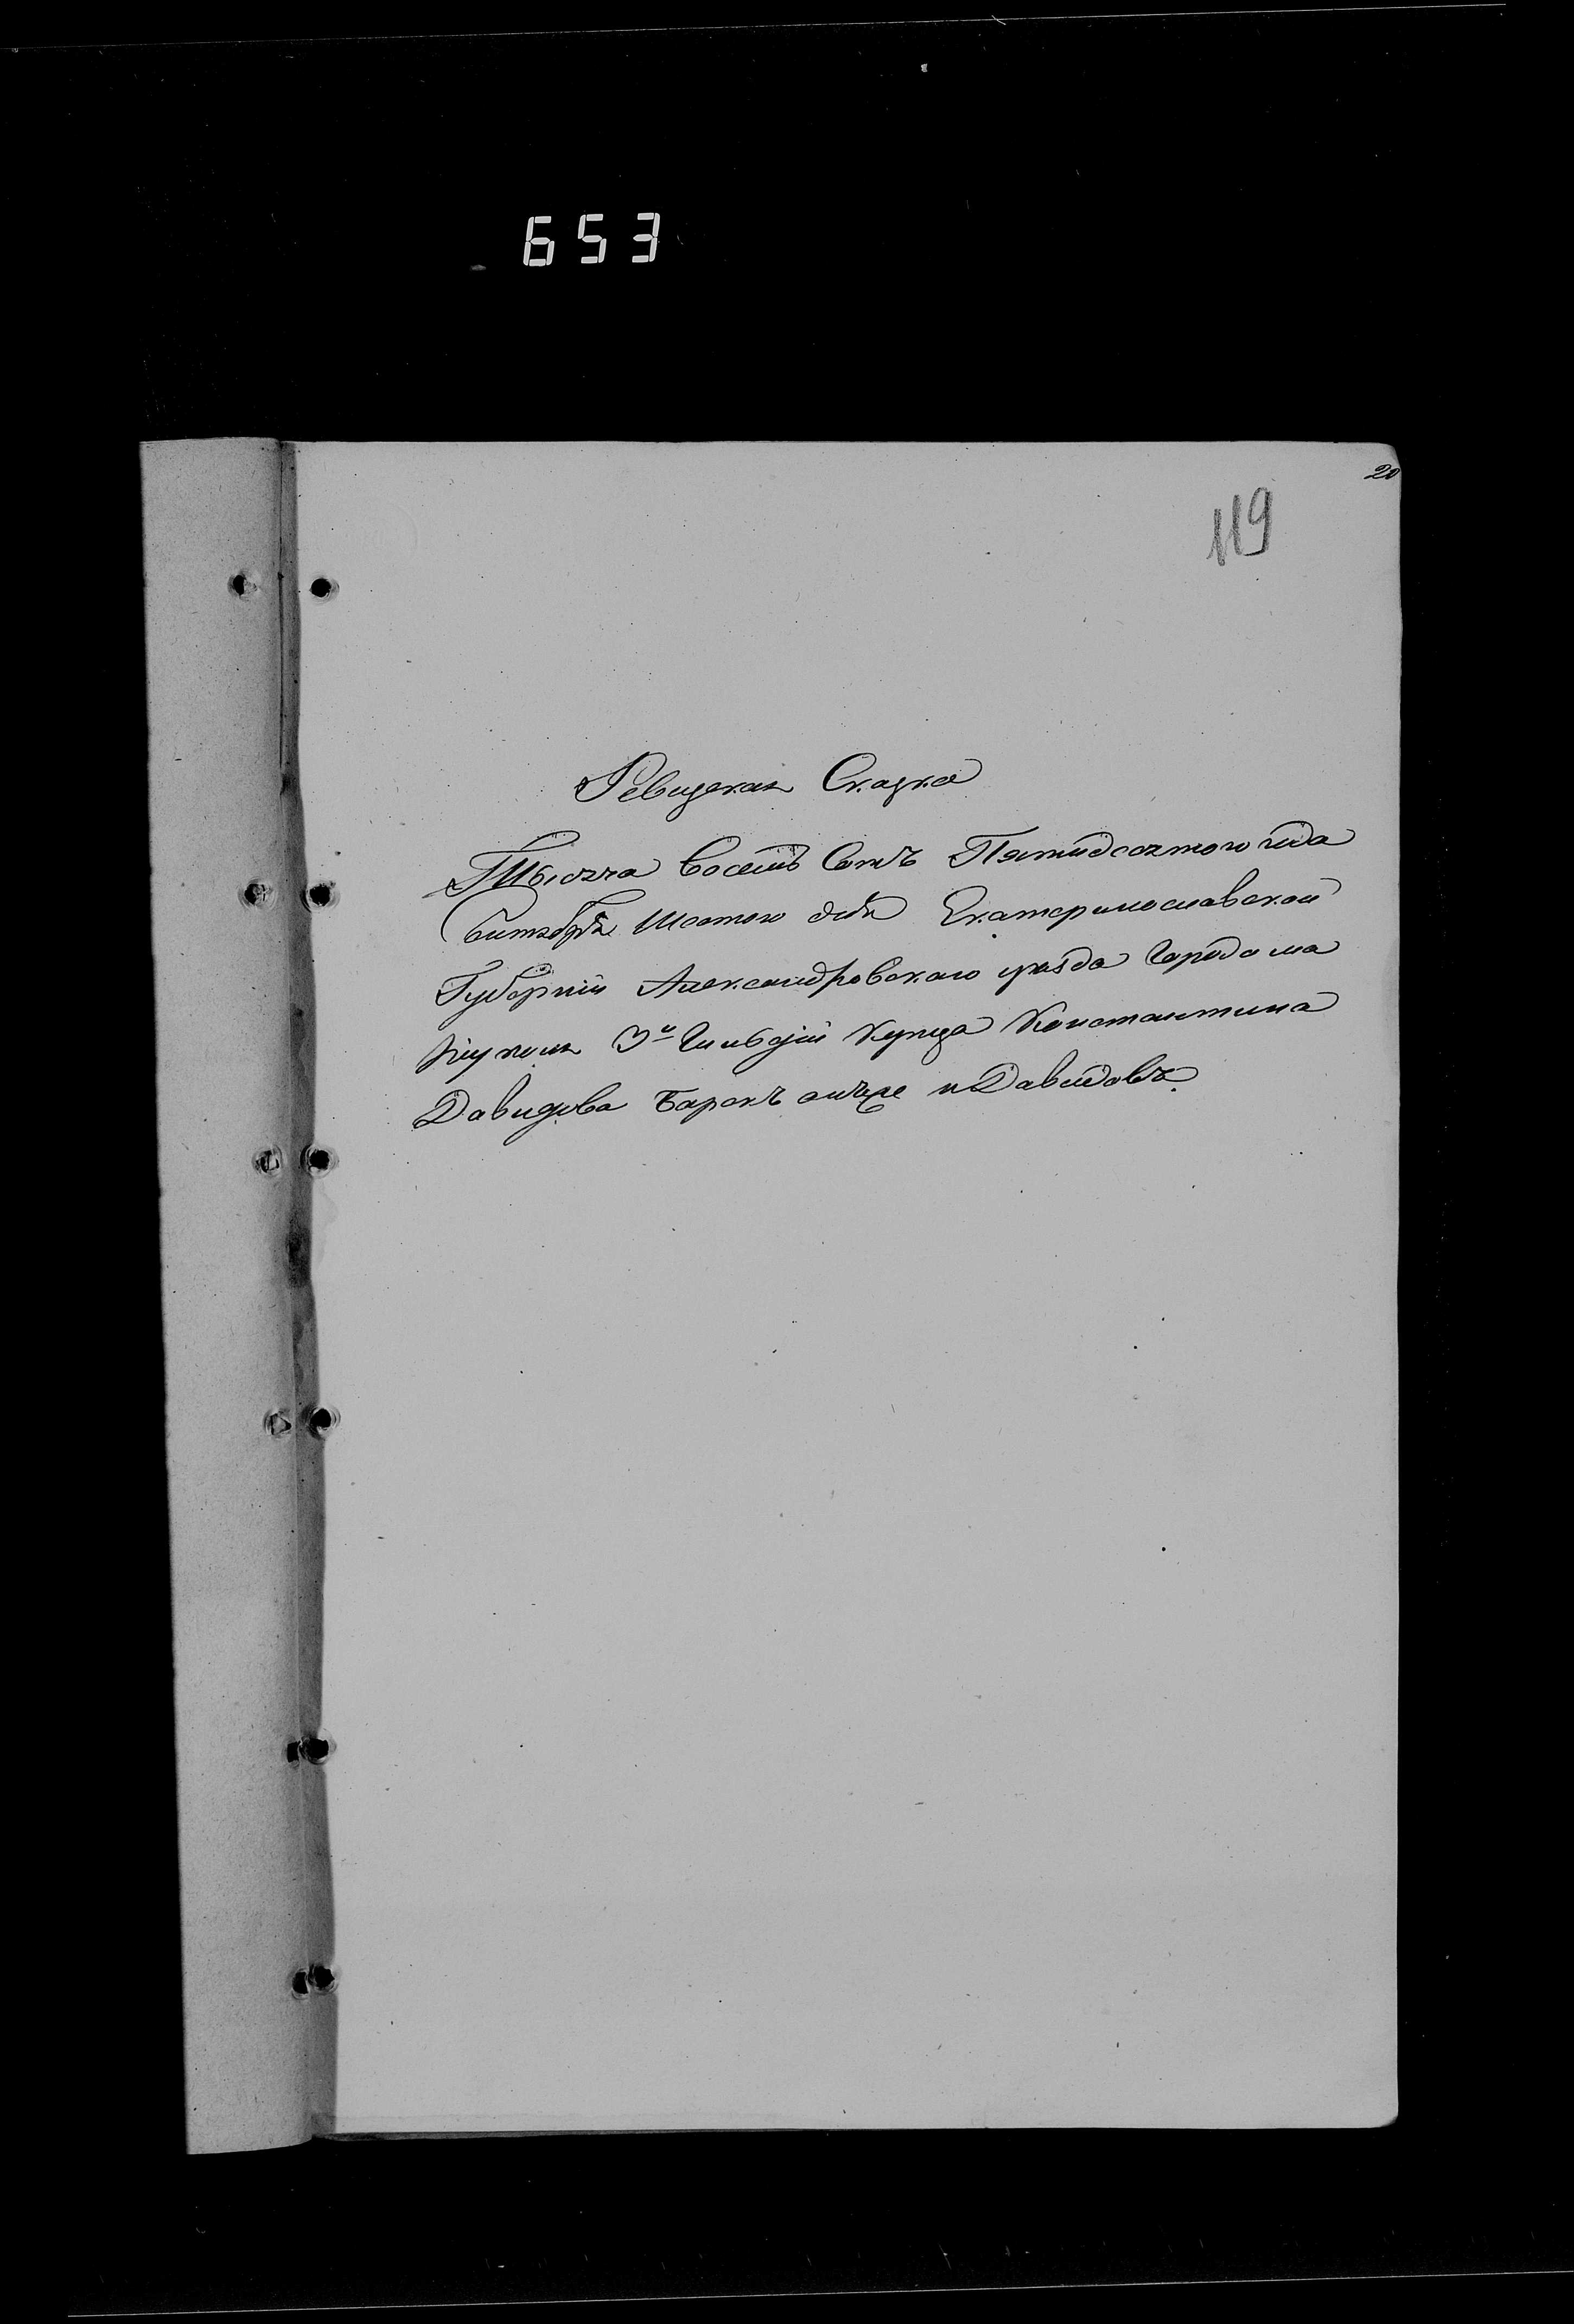 653
20
119
Ревизская Сказка
Тысяча восемь Сотъ Пятидесятого года
Сентября Шестого дня Екатеринославской
Губернии Александровского уезда Города Ма
риуполя 3й Гильдіи Купца Константина
Давидова онъ же и Давидовъ